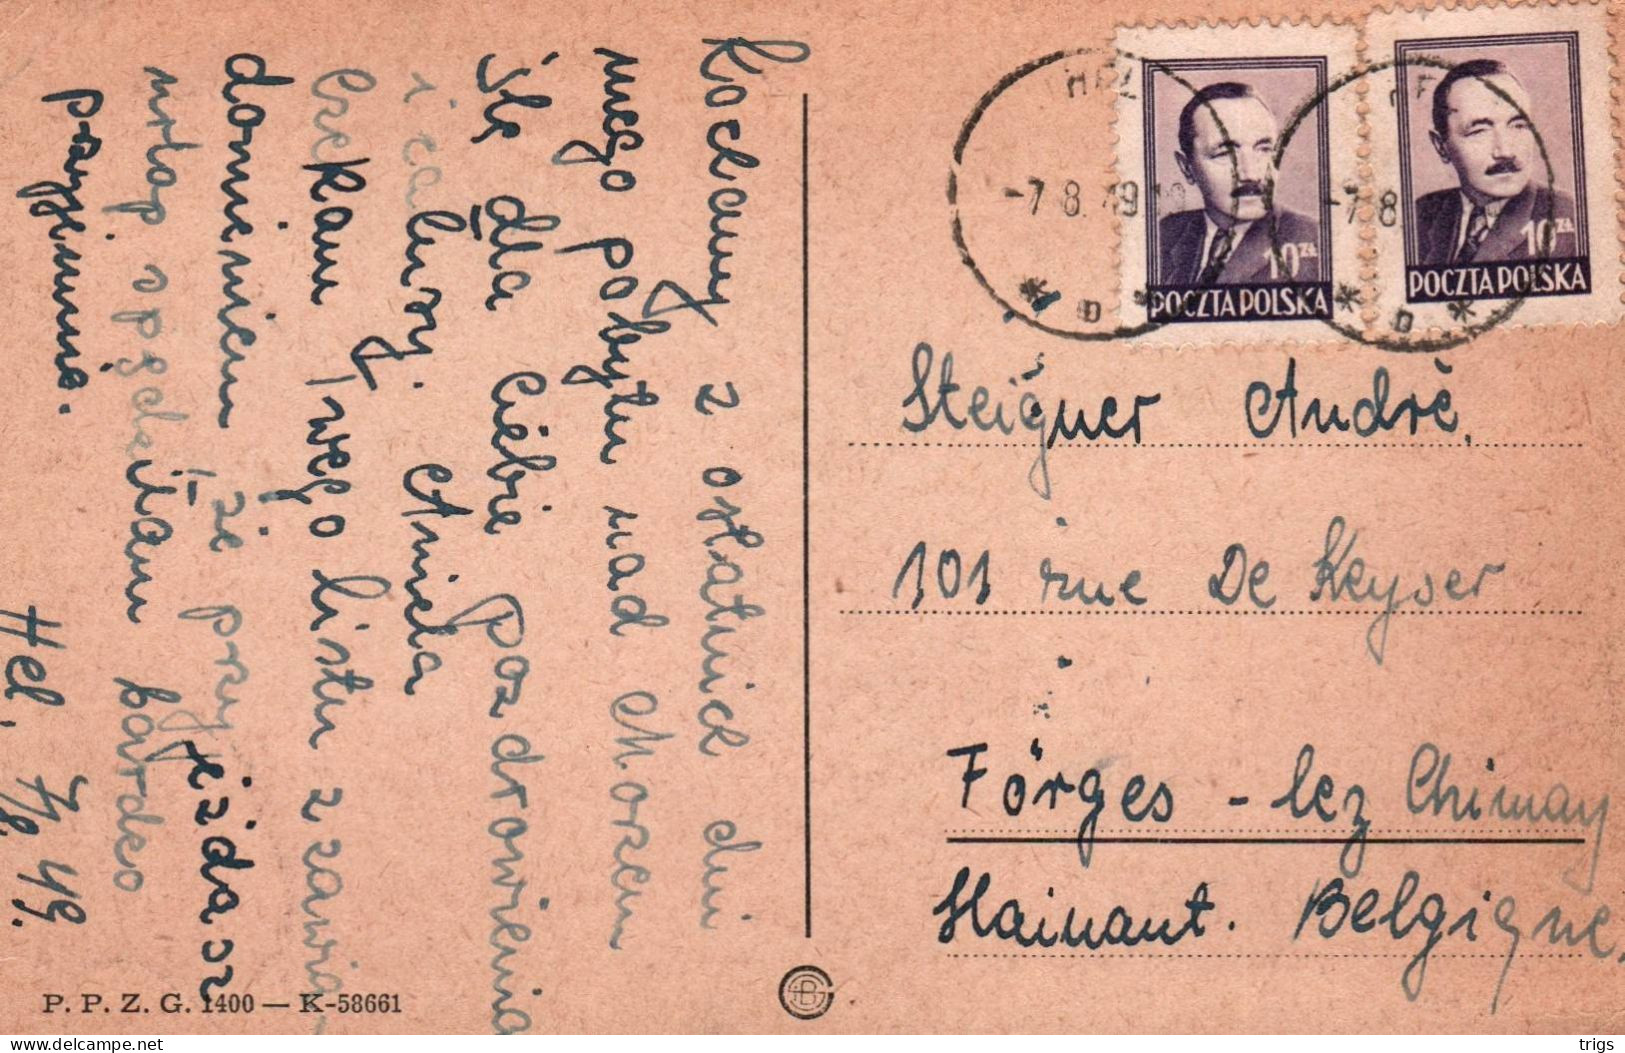 Kochany z ostatnich dni
mego pobytu nad Morzem
ślę dla Ciebie pozdrowienia
i całusy. Aniela
Czekam Twego listu z zawia-
domieniem że przyjeżdżasz
urlop spędziłam bardzo
przyjemnie.
Hel, 7/8. 49.
HEL
-7.8.49
D
HEL
-7.8
D
10 ZŁ
POCZTA POLSKA
10 ZŁ
POCZTA POLSKA
Steigner André.
101 rue De Keyser
Förges - lez Chimay
Hainaut. Belgique.
P. P. Z. G. 1400 — K-58661
delcampe.net
trigs